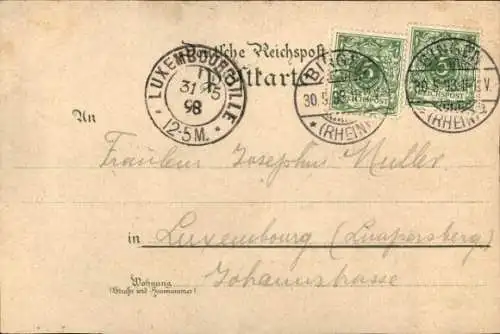 Deutsche Reichspost
Postkarte
LUXEMBOURG-VILLE
31 5
98
12-5M.
BINGEN
30.5.98
*(RHEIN)*
BINGEN
30.
(RHEIN)
An
Fräulein Josephus Muller
in Luxembourg (Limpersberg)
Wohnung
(Straße und Hausnummer)
Johannstrasse